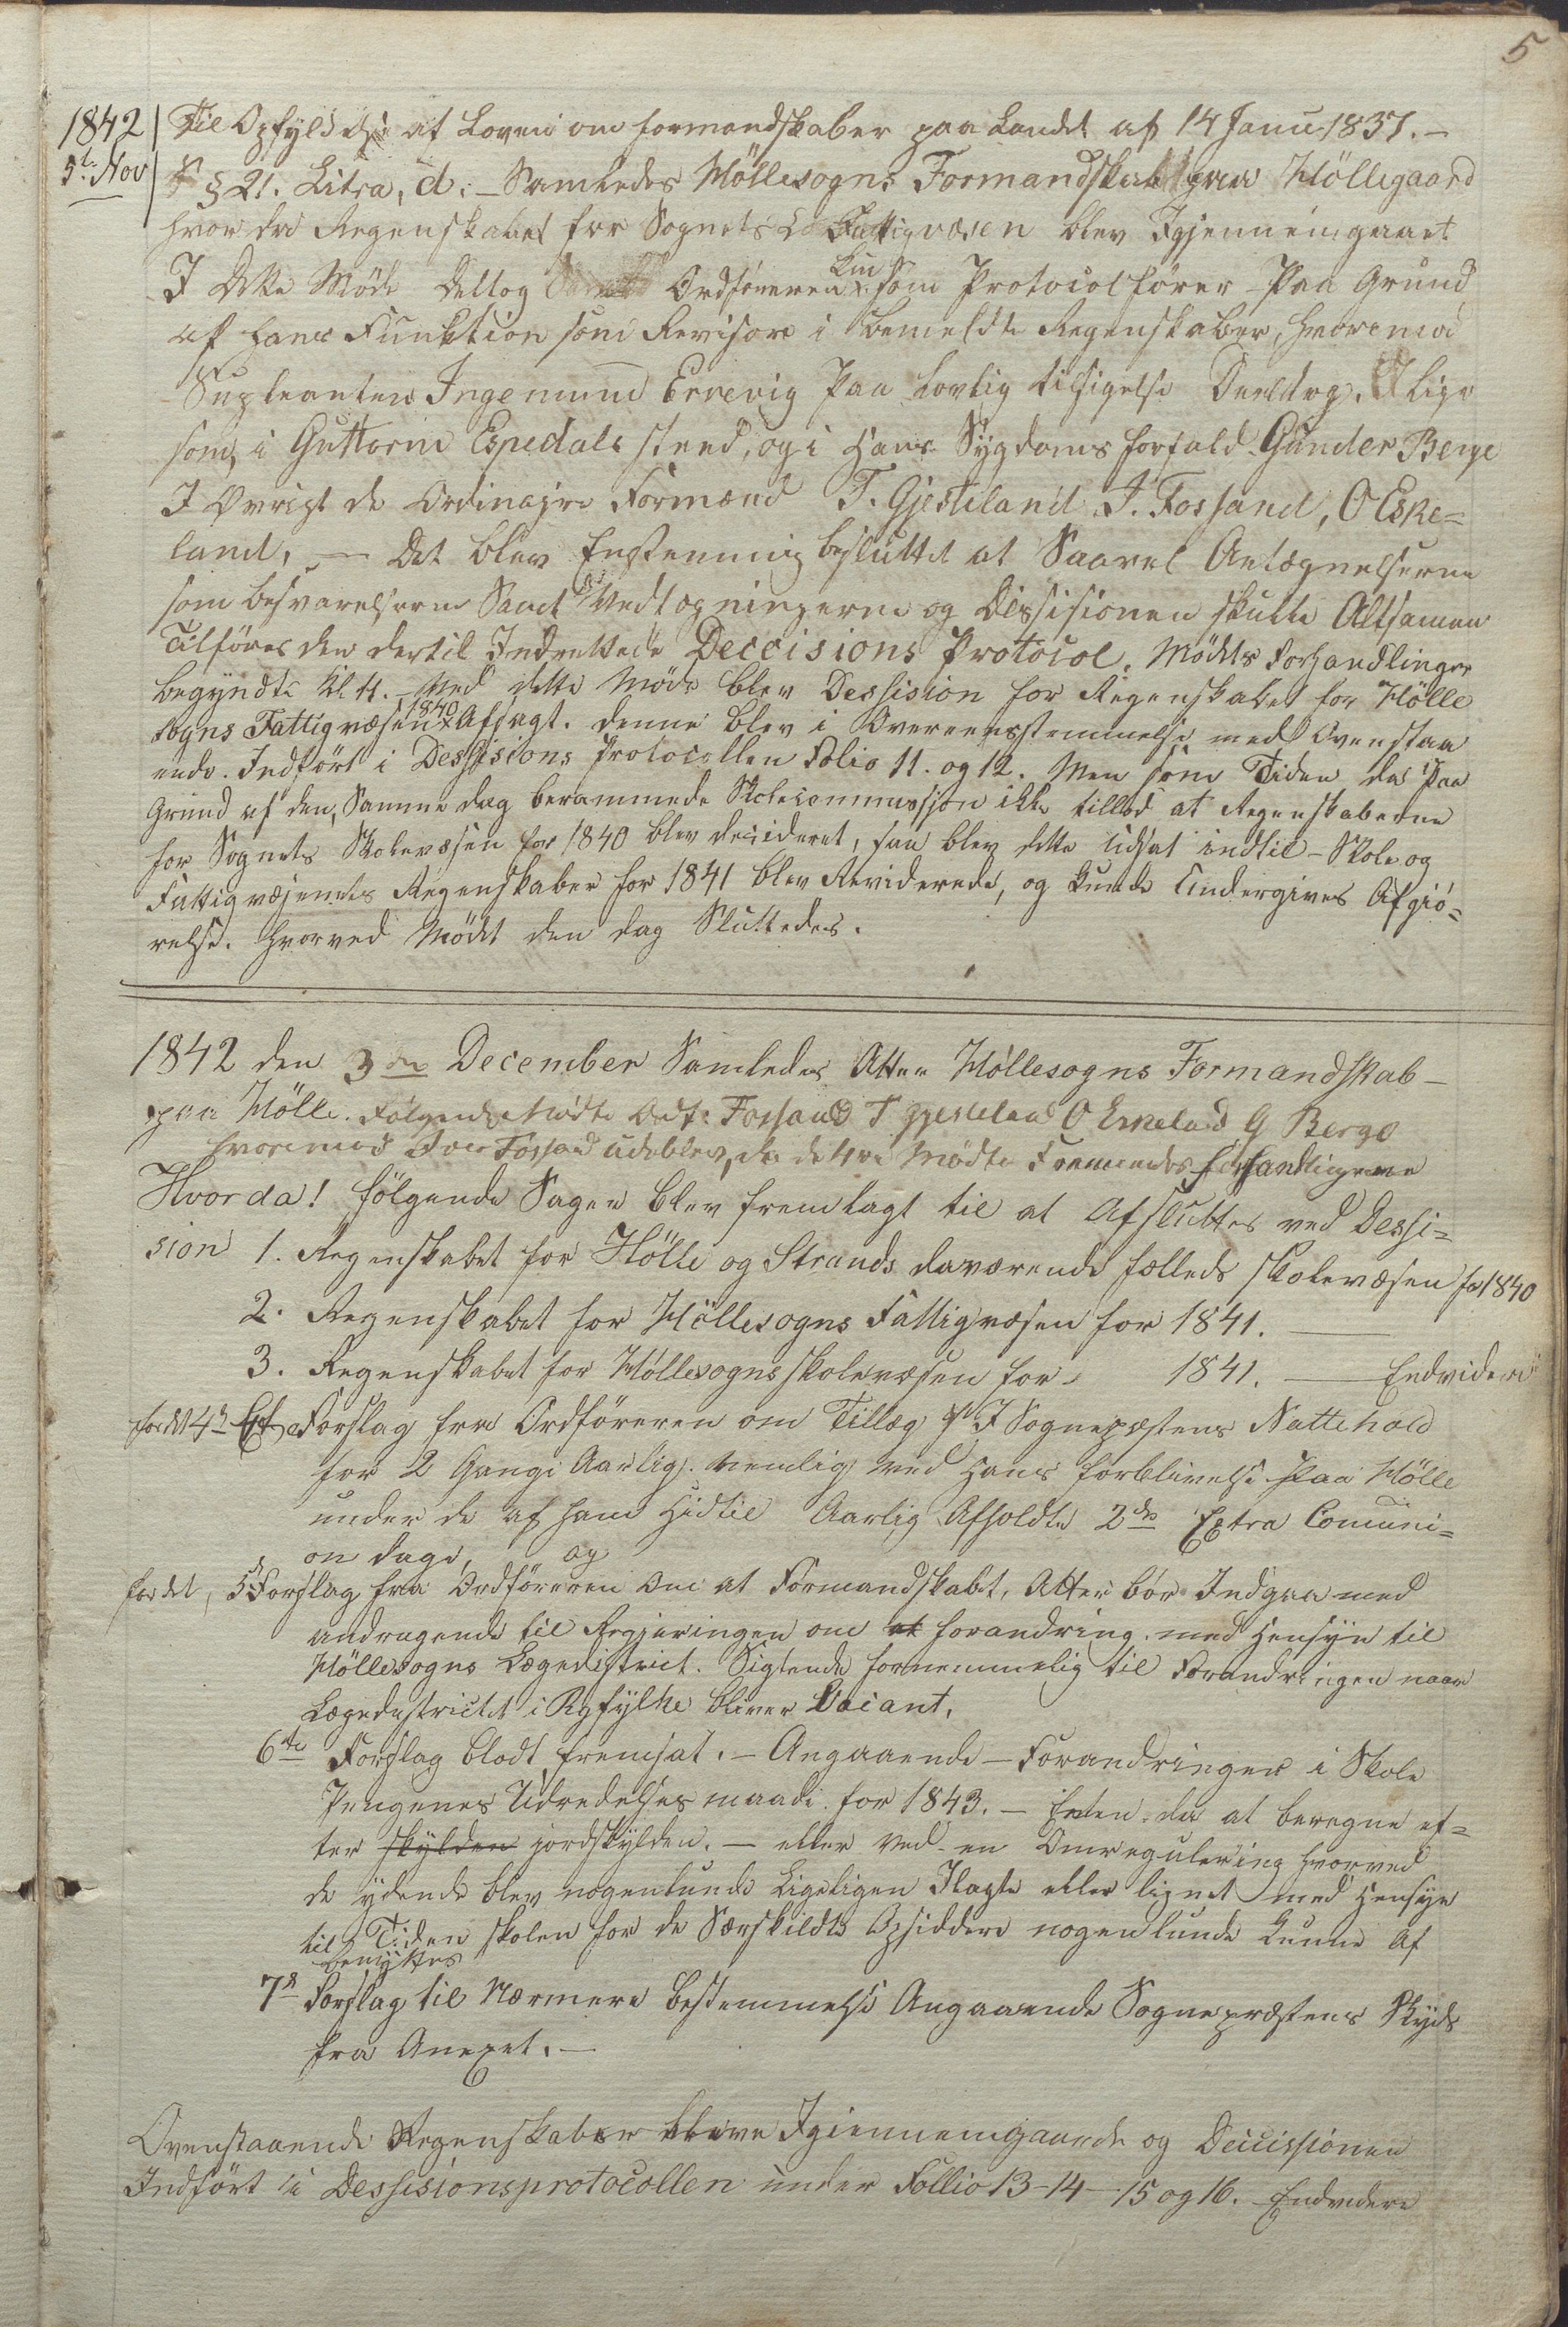 5
1842 Til Opfyldelse af Loven om Formandskaber paa Landet af 14 Janu 1837. –
5te Nov § 21. Litra, d. – Samledes Höllesogns Formandskab paa Höllegaard
hvor da Regenskabet for Sognets Fattigvæsen blev Igjennemgaaet
I Dette Möde deltog Ordföreren kun som Protocolförer – Paa Grund
af hans Funktion som Revisor i bemeldte Regenskaber, hvoremod
Supleanten Ingemund Errevig Paa lovlig tilsigelse Deeltog, Lige
som, i Guttorm Espedals sted, og i Hans Sygdoms forfald Gunder Berge
I Øvrigt de Ordinaire Formænd T. Gjesteland J. Fossand, O Eske=
land, – Det blev Enstemmig besluttet at Saavel Antegnelserne
som besvarelserne Samt Vedtegningerne og Dessisionen skulle Altsamen
Tilföres den dertil Indrettede Deccisions Protocol. Mödets Forhandlinger
begyndte Kl. 11. – Ved dette Möde blev Dessision for Regenskabet for Hölle
sogns Fattigvæsen 1840 Afsagt. denne blev i Overeensstemmelse med Ovenstaa
ende. Indfört i Dessisions Protocollen Folio 11. og 12. Men som Tiden da Paa
Grund af den, Samme dag berammede Skolecommission ikke tillod at Regenskaberne
for Sognets Skolevæsen for 1840 blev decideret, saa blev dette Udsat indtil – Skole og
Fattigvæsenets Regenskaber for 1841 blev Reviderede, og kunde Undergives Afgiö=
relse. hvorved Mödet den dag Sluttedes.
1842 den 3die December Samledes Atter Höllesogns Formandskab –
paa Hölle. Følgende Mødte Ordf: Fossand T Gjesteland O Eskeland G Berge
hvoremod Iver Fossand udeblev, da de 4re Mødte Fremmedes Forhandlingerne
Hvor da! følgende Sager blev fremlagt til at Afsluttes ved Dessi=
sion 1. Regenskabet for Hölle og Strands daværende fælleds skolevæsen for 1840
2. Regenskabet for Höllesogns Fattigvæsen for 1841. –
3. Regenskabet for Höllesogns skolevæsen for 1841. – Endvidere
for det 4de Et Forslag fra Ordföreren om Tillæg I Sognepræstens Nattehold
for 2 Gange Aarlig. nemlig ved Hans forblivelse Paa Hölle
under de af ham Hidtil Aarlig Afholdte 2de Extra Comuni=
on dage, og
for det, 5 Forslag fra Ordföreren Om at Formandskabet, Atter bör Indgaa med
andragende til Regjeringen om at forandring med Hensyn til
Höllesogns Lægedistrict. Sigtende fornemmelig til Forandringen naar
Lægedistrictet i Ryfylke bliver Vacant.
6te Forslag blodt fremsat. – Angaaende – Forandringer i Skole
Pengenes Udredelses maade for 1843. – Enten da at beregne ef=
ter skylden jordskylden. – eller ved en Omregulering hvorved
de ydende blev nogenlunde Ligeligen Ilagte eller lignet med Hensyn
til Tiden skolen for de Særskildte Opsiddere nogenlunde kunne Af
benyttes
7de Forslag til Nærmere bestemmelse Angaaende Sognepræstens Skyds
fra Anexet. –
Ovenstaaende Regenskaber bleve Igiennemgaaede og Deccissionen
Indfört i Dessisionsprotocollen under Follio 13 – 14 – 15 og 16. Endvidere